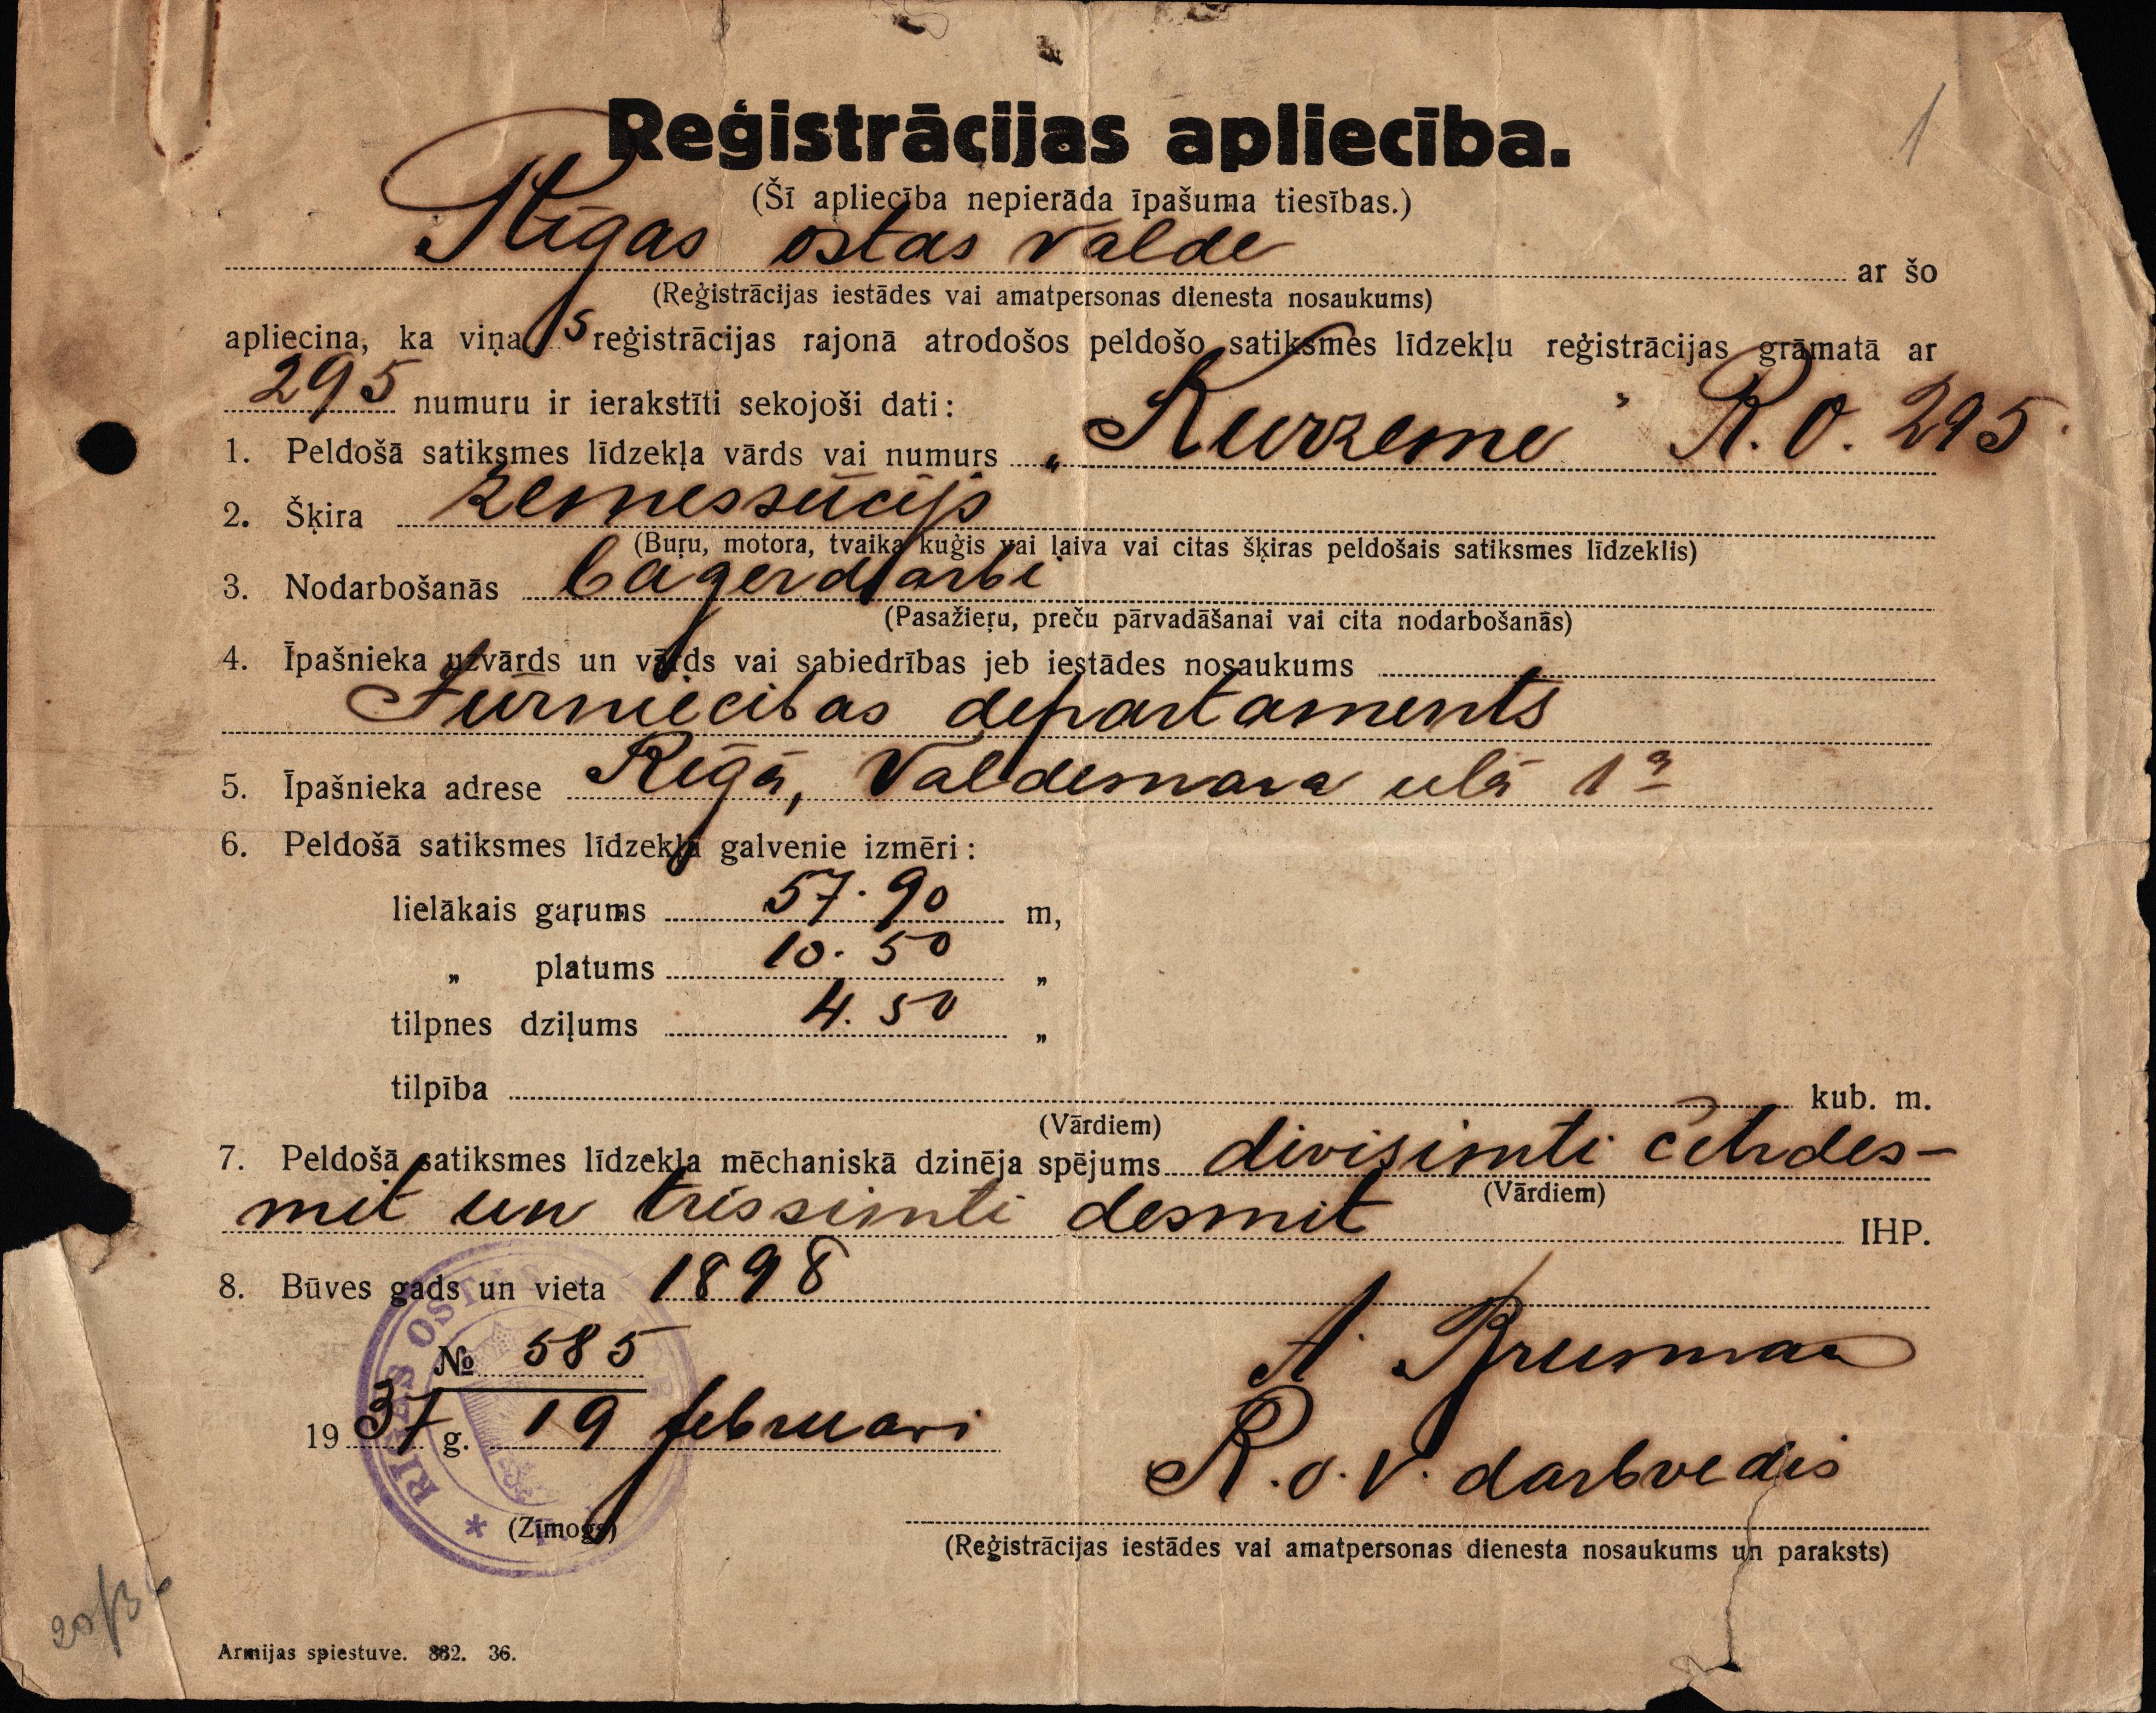 1
Reģistrācijas apliecība.
(Šī apliecība nepierāda īpašuma tiesības.)
Rīgas ostas valde ar šo
(Reģistrācijas iestādes vai amatpersonas dienesta nosaukums)
apliecina, ka viņas reģistrācijas rajonā atrodošos peldošo satiksmes līdzekļu reģistrācijas grāmatā ar
295 numuru ir ierakstīti sekojoši dati:
1. Peldošā satiksmes līdzekļa vārds vai numurs „Kurzeme" R.O. 295
2. Šķira zemessūcējs
(Buŗu, motora, tvaika kuģis vai laiva vai citas šķiras peldošais satiksmes līdzeklis)
3. Nodarbošanās bagerdarbi
(Pasažieŗu, preču pārvadāšanai vai cita nodarbošanās)
4. Īpašnieka uzvārds un vārds vai sabiedrības jeb iestādes nosaukums
Jūrniecības departaments
5. Īpašnieka adrese Rīgā, Valdemara ielā 1a
6. Peldošā satiksmes līdzekļa galvenie izmēri:
lielākais gaŗums 57.90 m,
„ platums 10.50 „
tilpnes dziļums 4.50 „
tilpība kub. m.
(Vārdiem)
7. Peldošā satiksmes līdzekļa mēchaniskā dzinēja spējums divisimti četrdes-
(Vārdiem)
mit un trīssimti desmit IHP.
8. Būves gads un vieta 1898
№ 585
A. Bruman
1937 g. 19 februari
R.o.v. darbvedis
RĪGAS OSTAS
(Zīmogs)
(Reģistrācijas iestādes vai amatpersonas dienesta nosaukums un paraksts)
Armijas spiestuve. 882. 36.